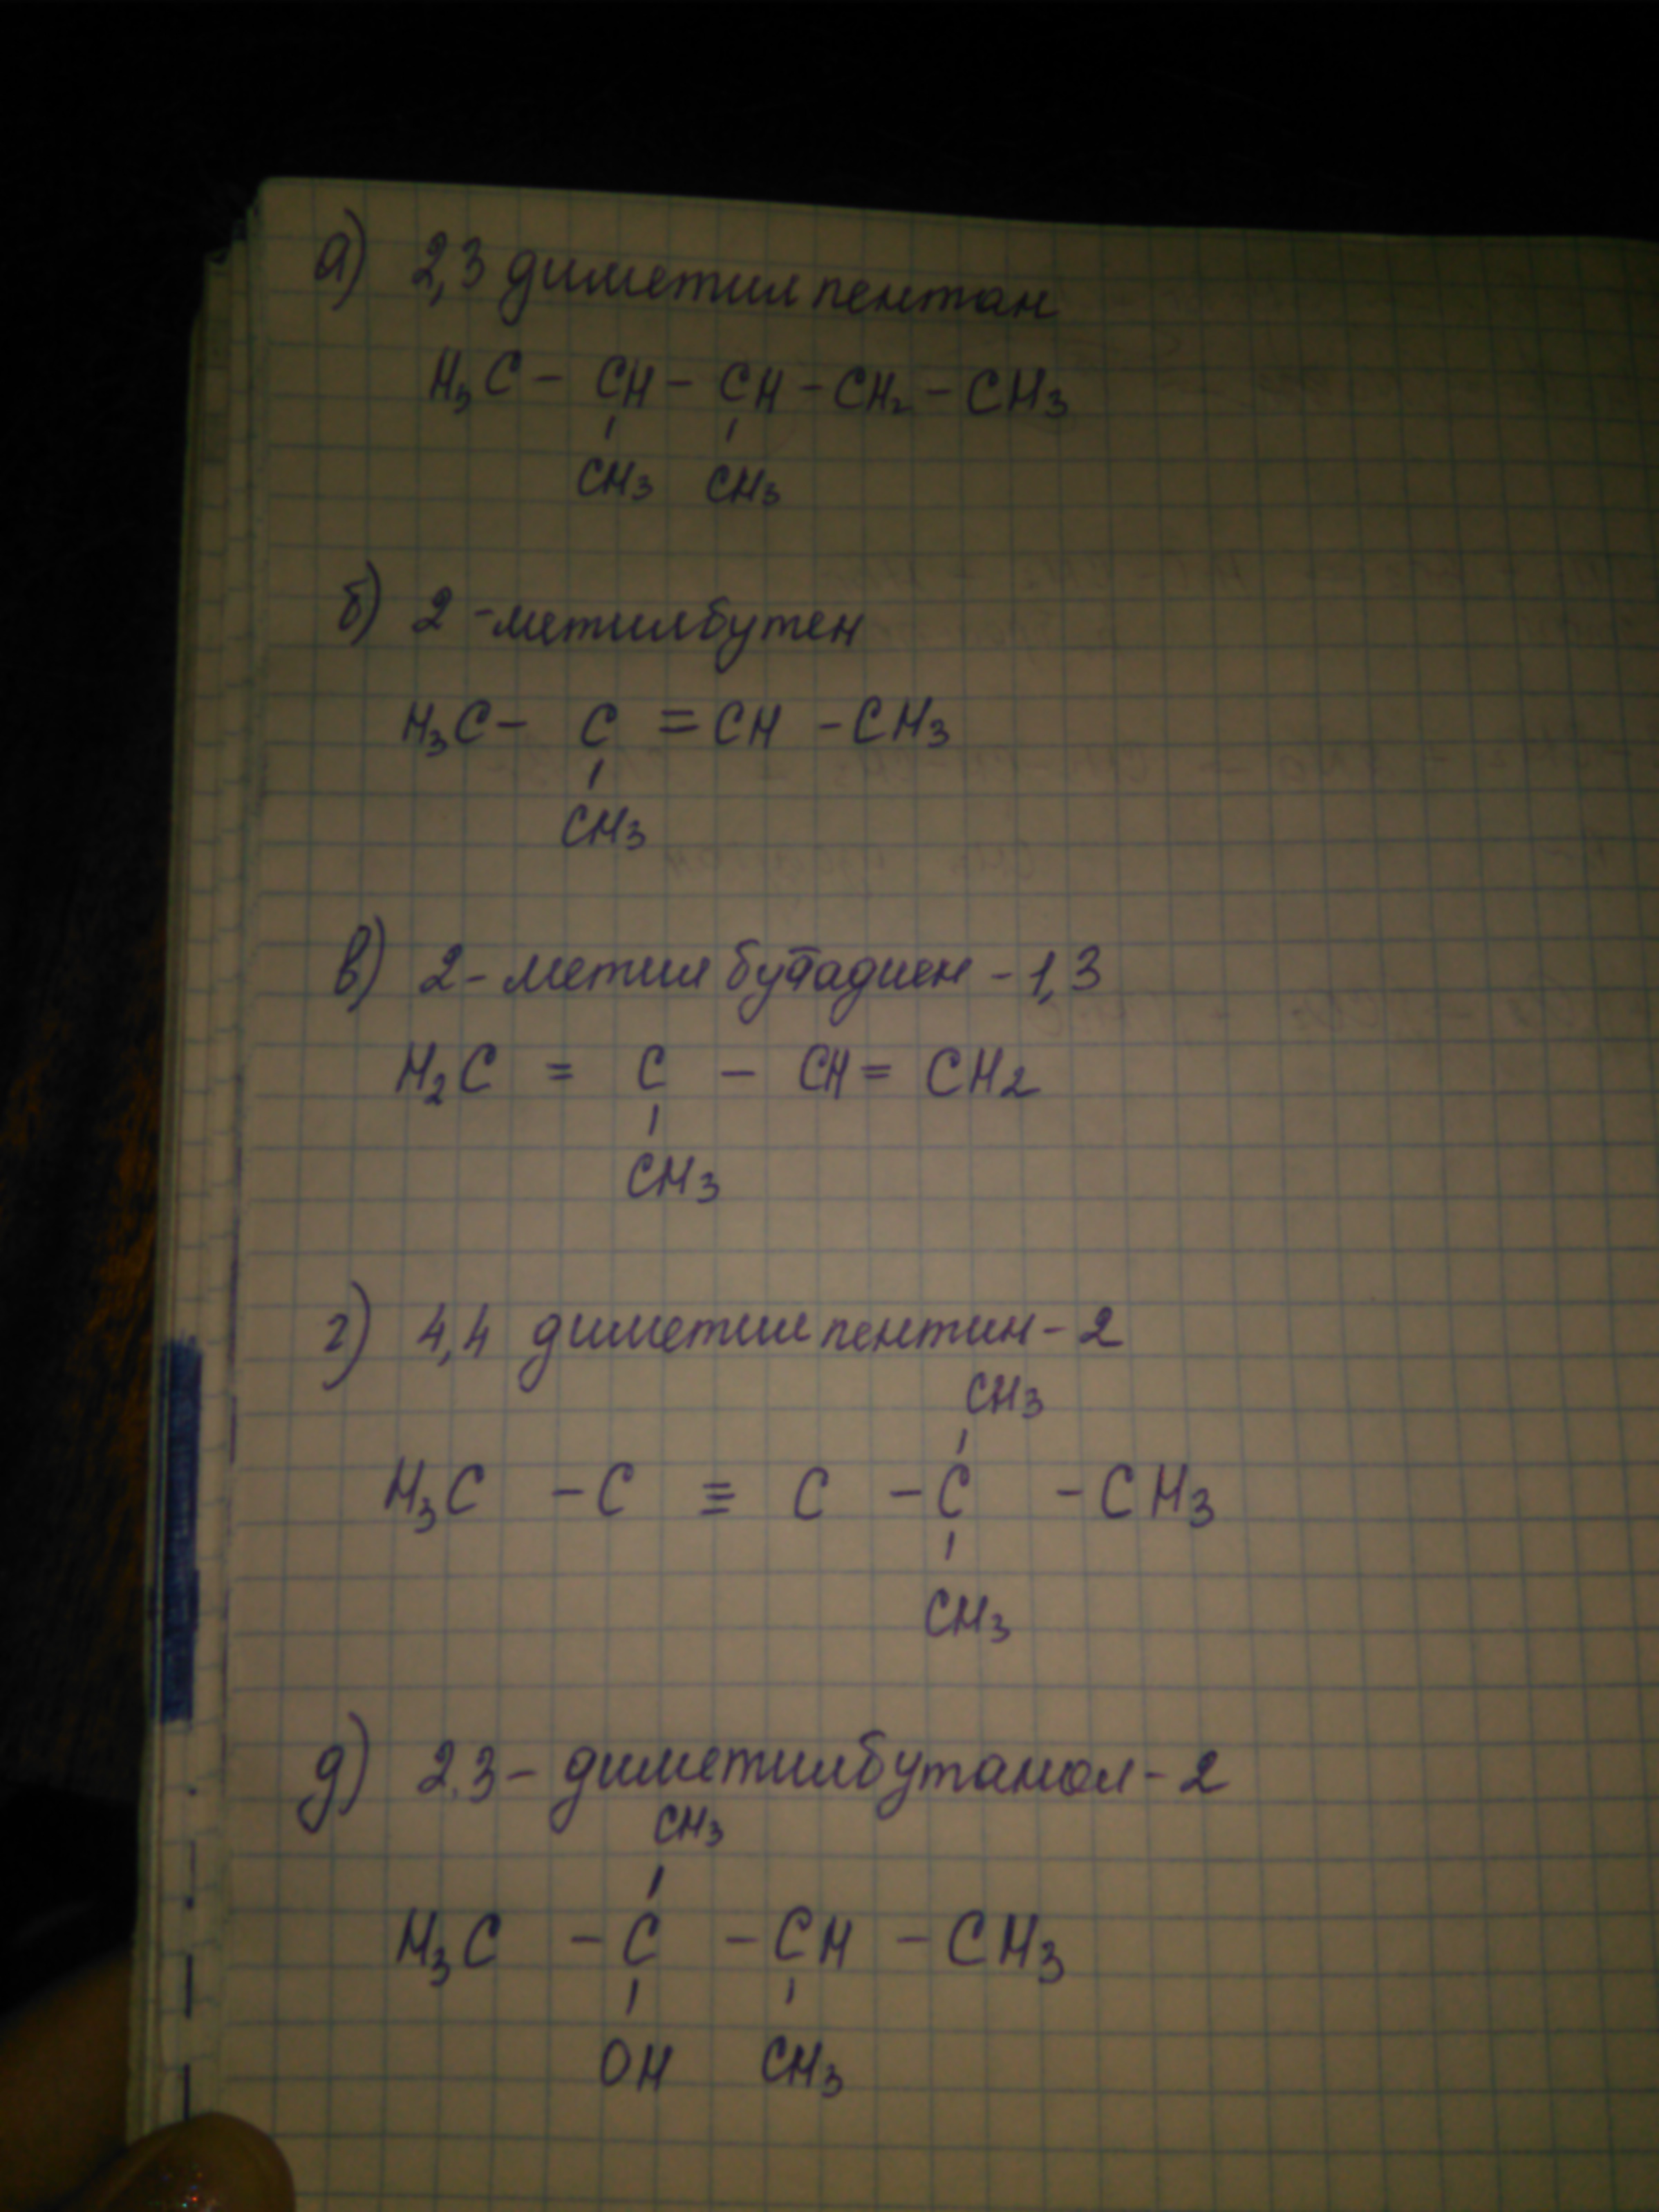 а) 2,3 диметилпентан
H₃C - CH - CH - CH₂ - CH₃
CH₃ CH₃
б) 2-метилбутен
H₃C - C = CH - CH₃
CH₃
в) 2-метилбутадиен-1,3
H₂C = C - CH = CH₂
CH₃
г) 4,4 диметилпентин-2
CH₃
H₃C - C ≡ C - C - CH₃
CH₃
д) 2.3-диметилбутанол-2
CH₃
H₃C - C - CH - CH₃
OH CH₃